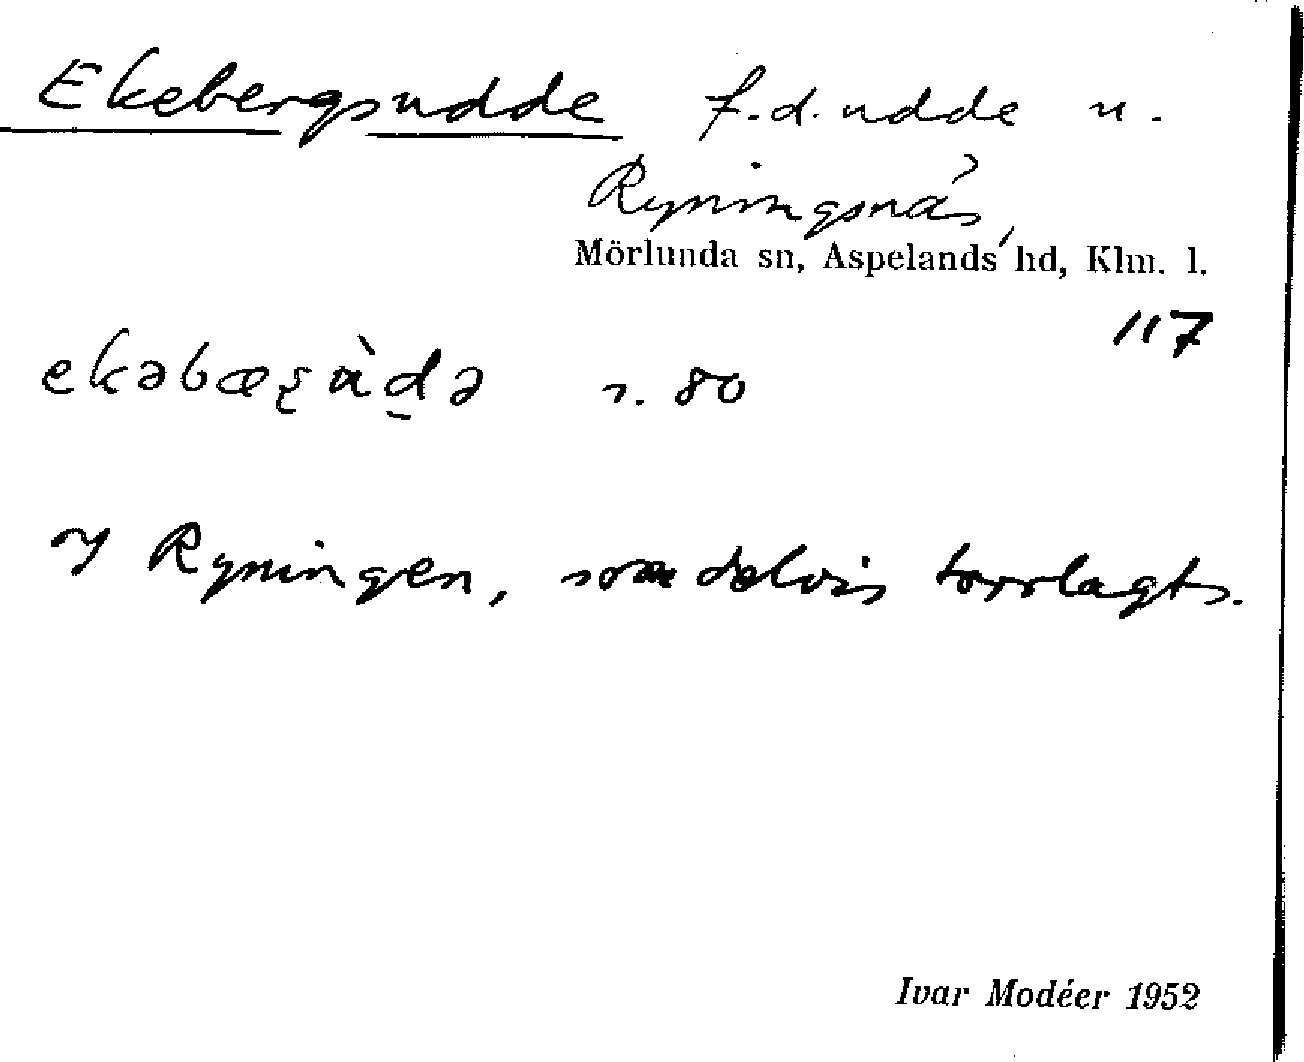 Ekebergsudde f.d. udde u.
Ryningsnäs,
Mörlunda sn, Aspelands hd, Klm. l.
117
ekəbæʂὰd̠ə s. 80
I Ryningen, som delvis torrlagts.
Ivar Modéer 1952